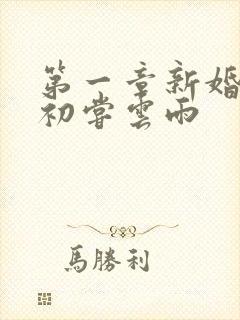 第一章新婚
初嘗雲雨
馬勝利